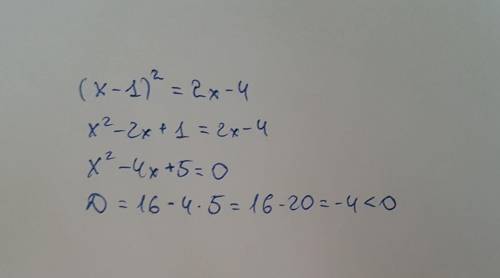 (x-1)² = 2x-4
x²-2x+1 = 2x-4
x²-4x+5=0
D = 16-4·5 = 16-20 = -4<0